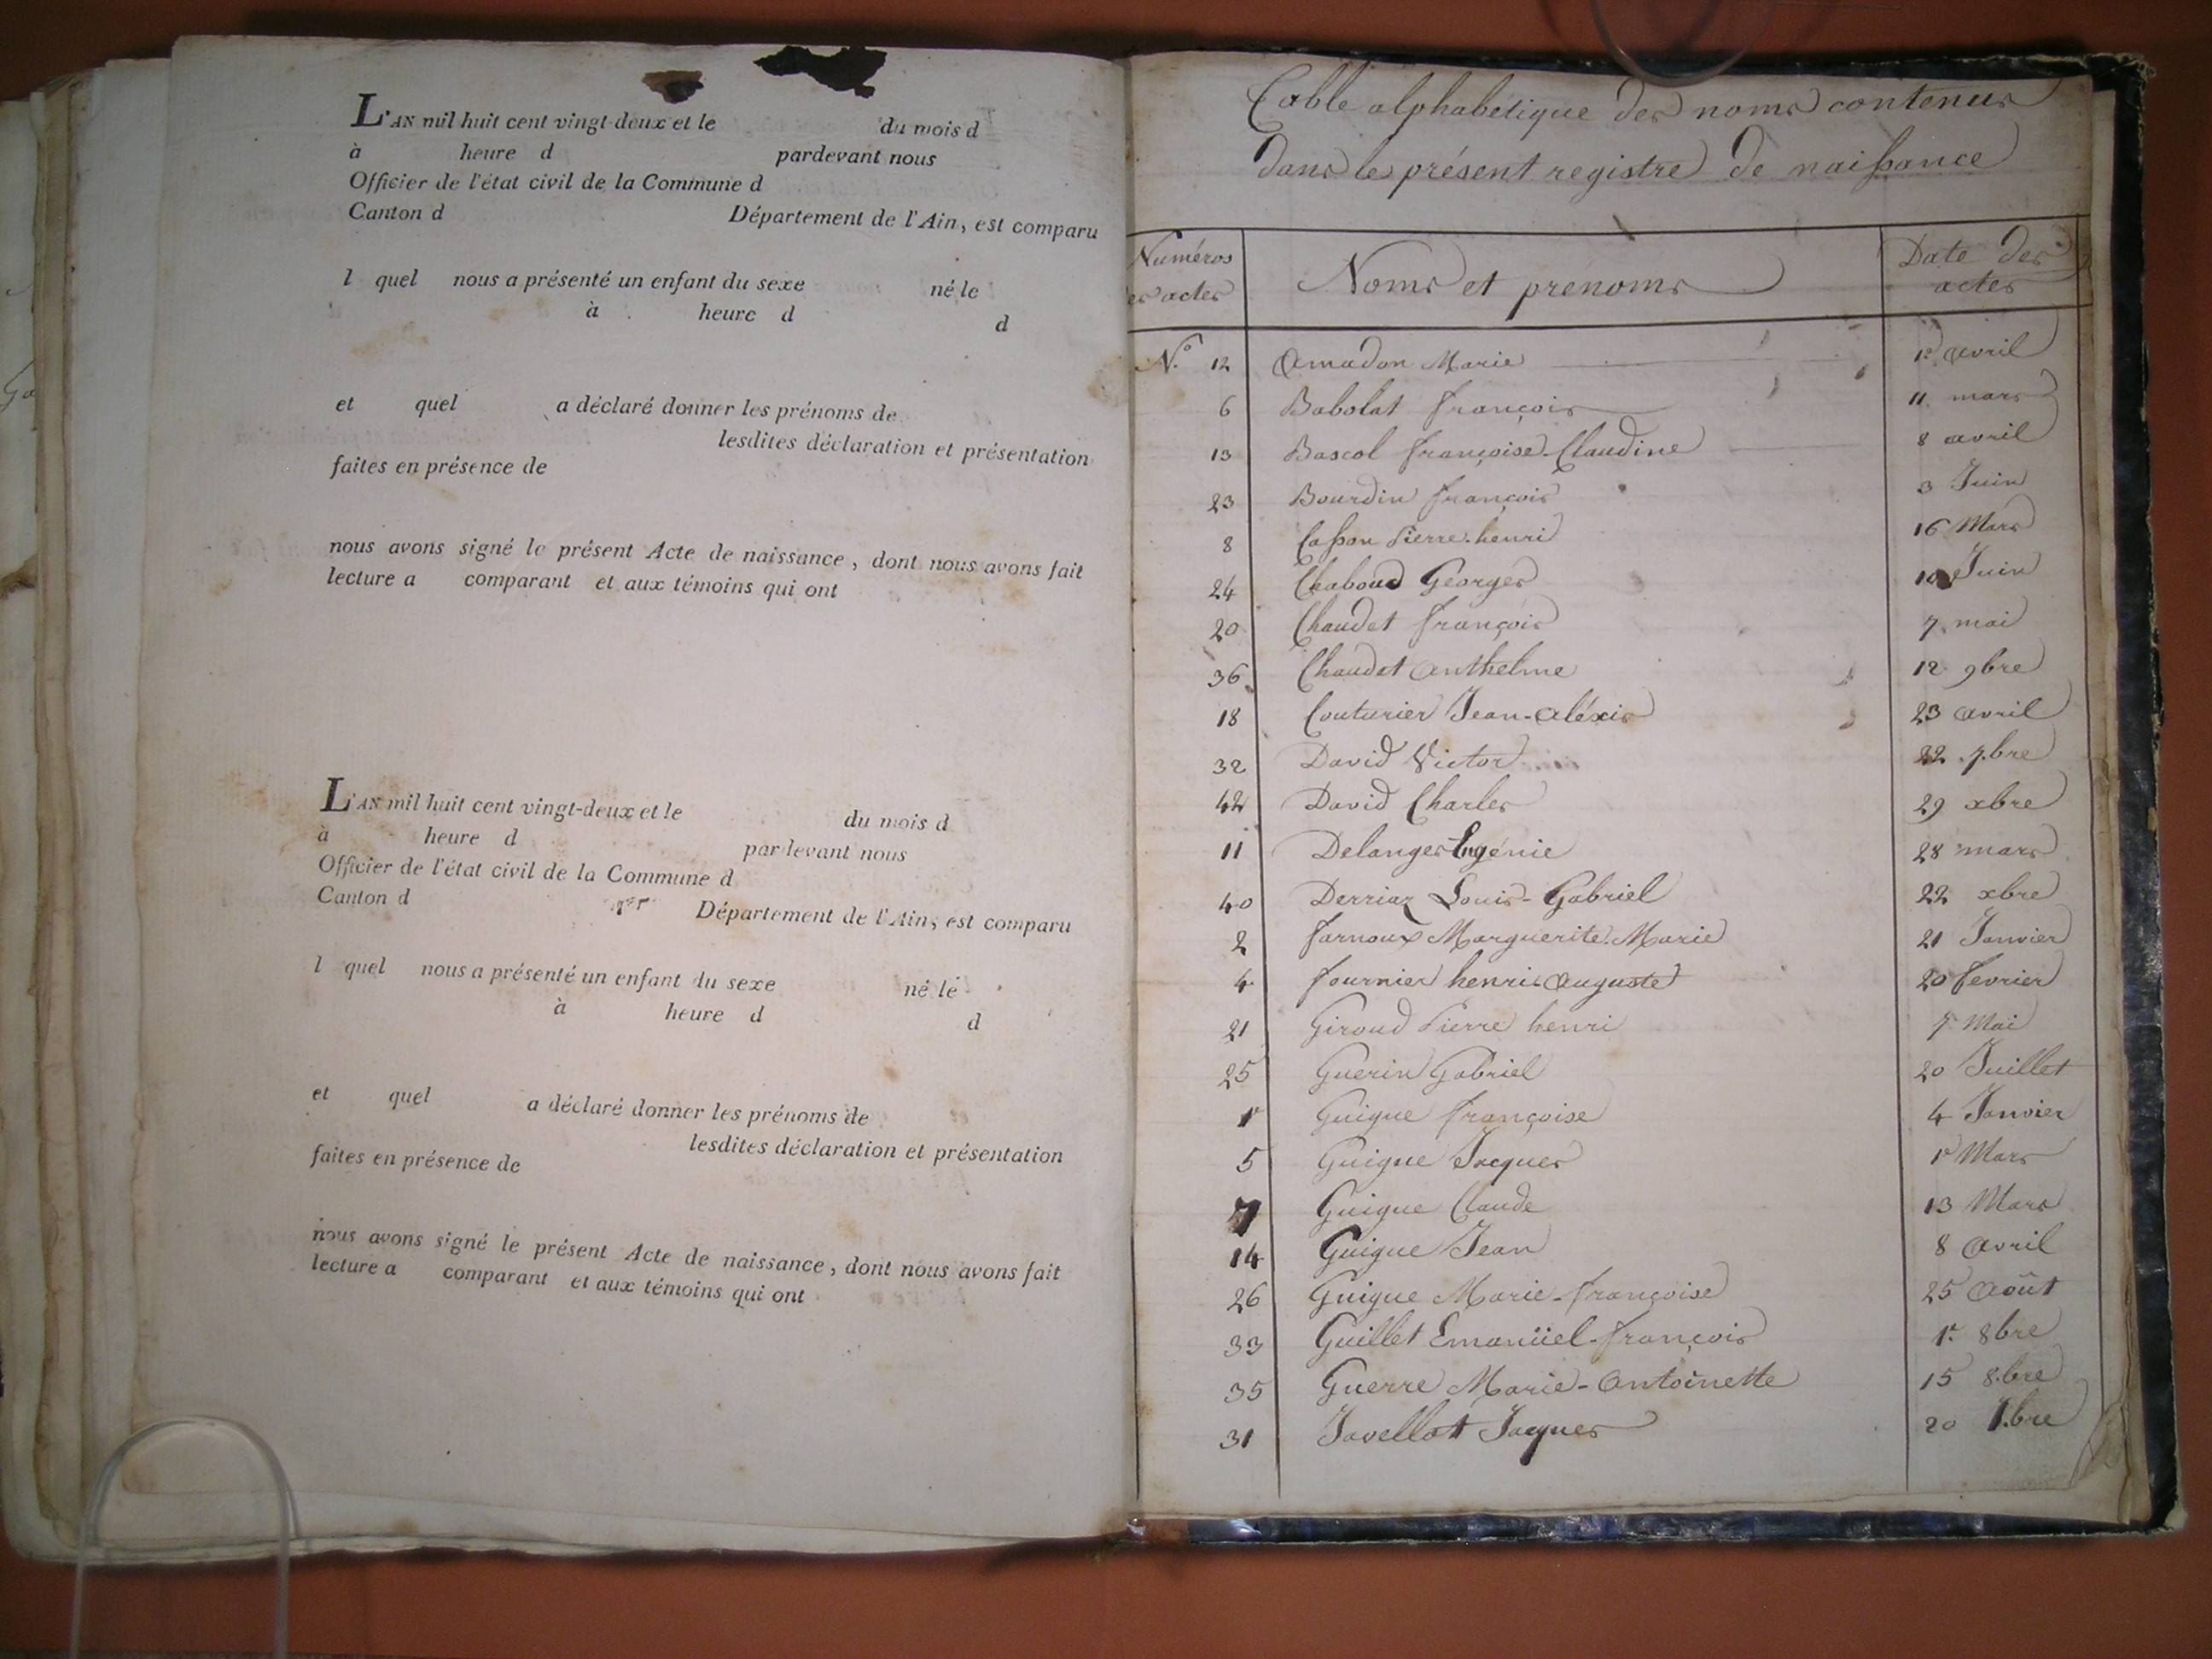 L'AN mil huit cent vingt-deux et le du mois d
à heure d pardevant nous
Officier de l'état civil de la Commune d
Canton d Département de l'Ain, est comparu
l quel nous a présenté un enfant du sexe né le
à heure d d
et quel a déclaré donner les prénoms de
lesdites déclaration et présentation
faites en présence de
nous avons signé le présent Acte de naissance, dont nous avons fait
lecture a comparant et aux témoins qui ont
L'AN mil huit cent vingt-deux et le du mois d
à heure d pardevant nous
Officier de l'état civil de la Commune d
Canton d Département de l'Ain, est comparu
l quel nous a présenté un enfant du sexe né le
à heure d d
et quel a déclaré donner les prénoms de
lesdites déclaration et présentation
faites en présence de
nous avons signé le présent Acte de naissance, dont nous avons fait
lecture a comparant et aux témoins qui ont
Table alphabétique des noms contenus
dans le présent registre de naissance
Numéros es actes Noms et prénoms Date des actes
N.º 12 Amadon Marie 1er avril
6 Babolat françois 11 mars
13 Bascol françoise-Claudine 8 avril
23 Bourdin françois 3 Juin
8 Casson Pierre-henri 16 Mars
24 Chaboud Georges 10 Juin
20 Chaudet françois 7 mai
36 Chaudet anthelme 12 9bre
18 Couturier Jean-aléxis 23 avril
32 David Victor 22 7.bre
42 David Charles 29 xbre
11 Delanges Eugénie 28 mars
40 Derriaz Louis-Gabriel 22 xbre
2 farnoux Marguerite-Marie 21 Janvier
4 fournier henri auguste 20 fevrier
21 Giroud Pierre henri 7 Mai
25 Guerin Gabriel 20 Juillet
1r Guigue françoise 4 Janvier
5 Guigue Jacques 1r Mars
7 Guigue Claude 13 Mars
14 Guigue Jean 8 avril
26 Guigue Marie-françoise 25 août
33 Guillet Emanüel-françois 1r. 8bre
35 Guerre Marie-antoinette 15 8.bre
31 Javellot Jacques 20 7.bre